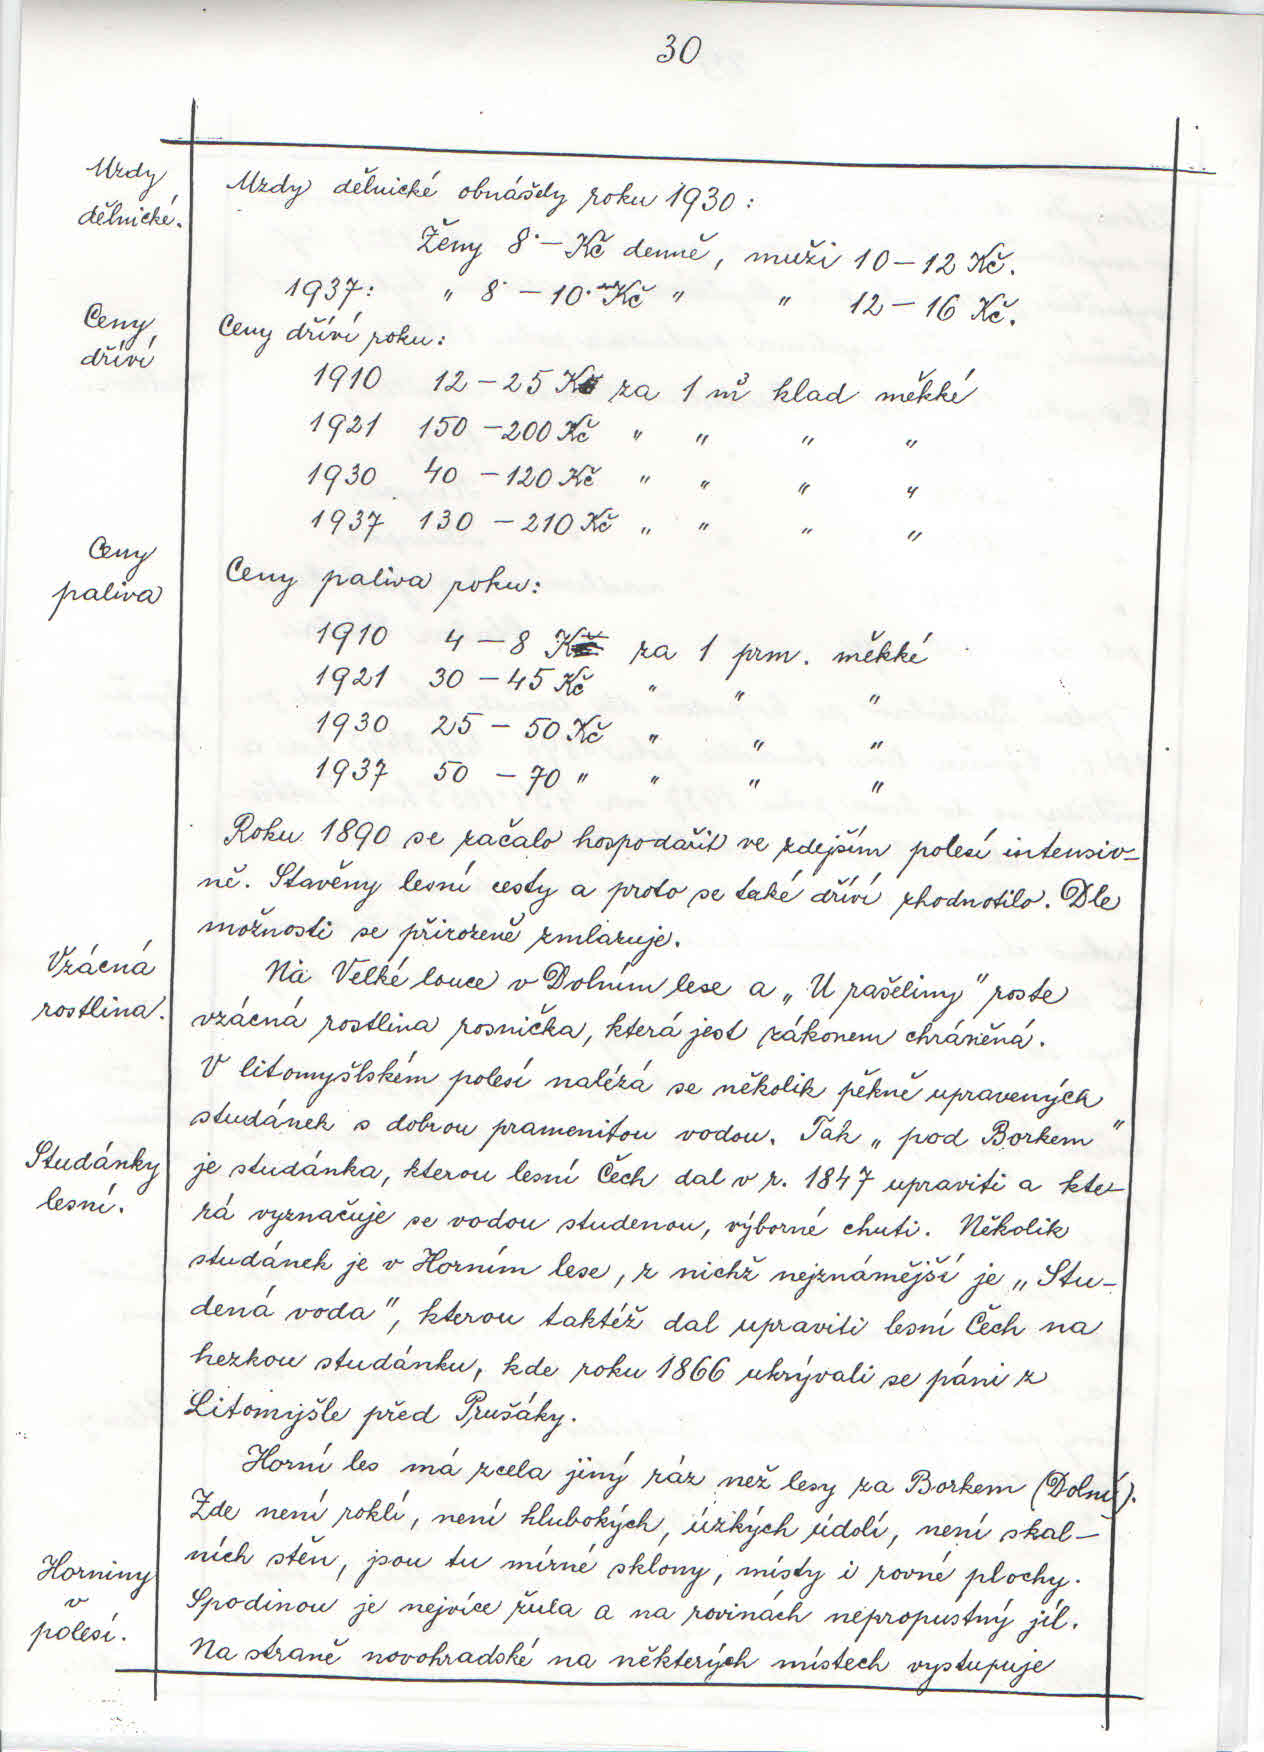 30
Mzdy
dělnické.
Mzdy dělnické obnášely roku 1930:
Ženy 8·— Kč denně, muži 10—12 Kč.
1937: „ 8·—10·— Kč „ „ 12—16 Kč.
Ceny
dříví
Ceny dříví roku:
1910 12—25 K za 1 m³ klad měkké
1921 150—200 Kč „ „ „ „
1930 40—120 Kč „ „ „ „
1937 130—210 Kč „ „ „ „
Ceny
paliva
Ceny paliva roku:
1910 4—8 K za 1 prm. měkké
1921 30—45 Kč „ „ „
1930 25—50 Kč „ „ „
1937 50—70 „ „ „ „
Roku 1890 se začalo hospodařit ve zdejším polesí intensiv-
ně. Stavěny lesní cesty a proto se také dříví zhodnotilo. Dle
možnosti se přirozeně zmlazuje.
Vzácná
rostlina.
Na Velké louce v Dolním lese a „U rašeliny" roste
vzácná rostlina rosnička, která jest zákonem chráněná.
V litomyšlském polesí nalézá se několik pěkně upravených
studánek s dobrou pramenitou vodou. Tak „pod Borkem"
Studánky
lesní.
je studánka, kterou lesní Čech dal v r. 1847 upraviti a kte-
rá vyznačuje se vodou studenou, výborné chuti. Několik
studánek je v Horním lese, z nichž nejznámější je „Stu-
dená voda", kterou taktéž dal upraviti lesní Čech na
hezkou studánku, kde roku 1866 ukrývali se páni z
Litomyšle před Prušáky.
Horní les má zcela jiný ráz než lesy za Borkem (Dolní).
Zde není roklí, není hlubokých, úzkých údolí, není skal-
ních stěn, jsou tu mírné sklony, místy i rovné plochy.
Horniny
v
polesí.
Spodinou je nejvíce žula a na rovinách nepropustný jíl.
Na straně novohradské na některých místech vystupuje